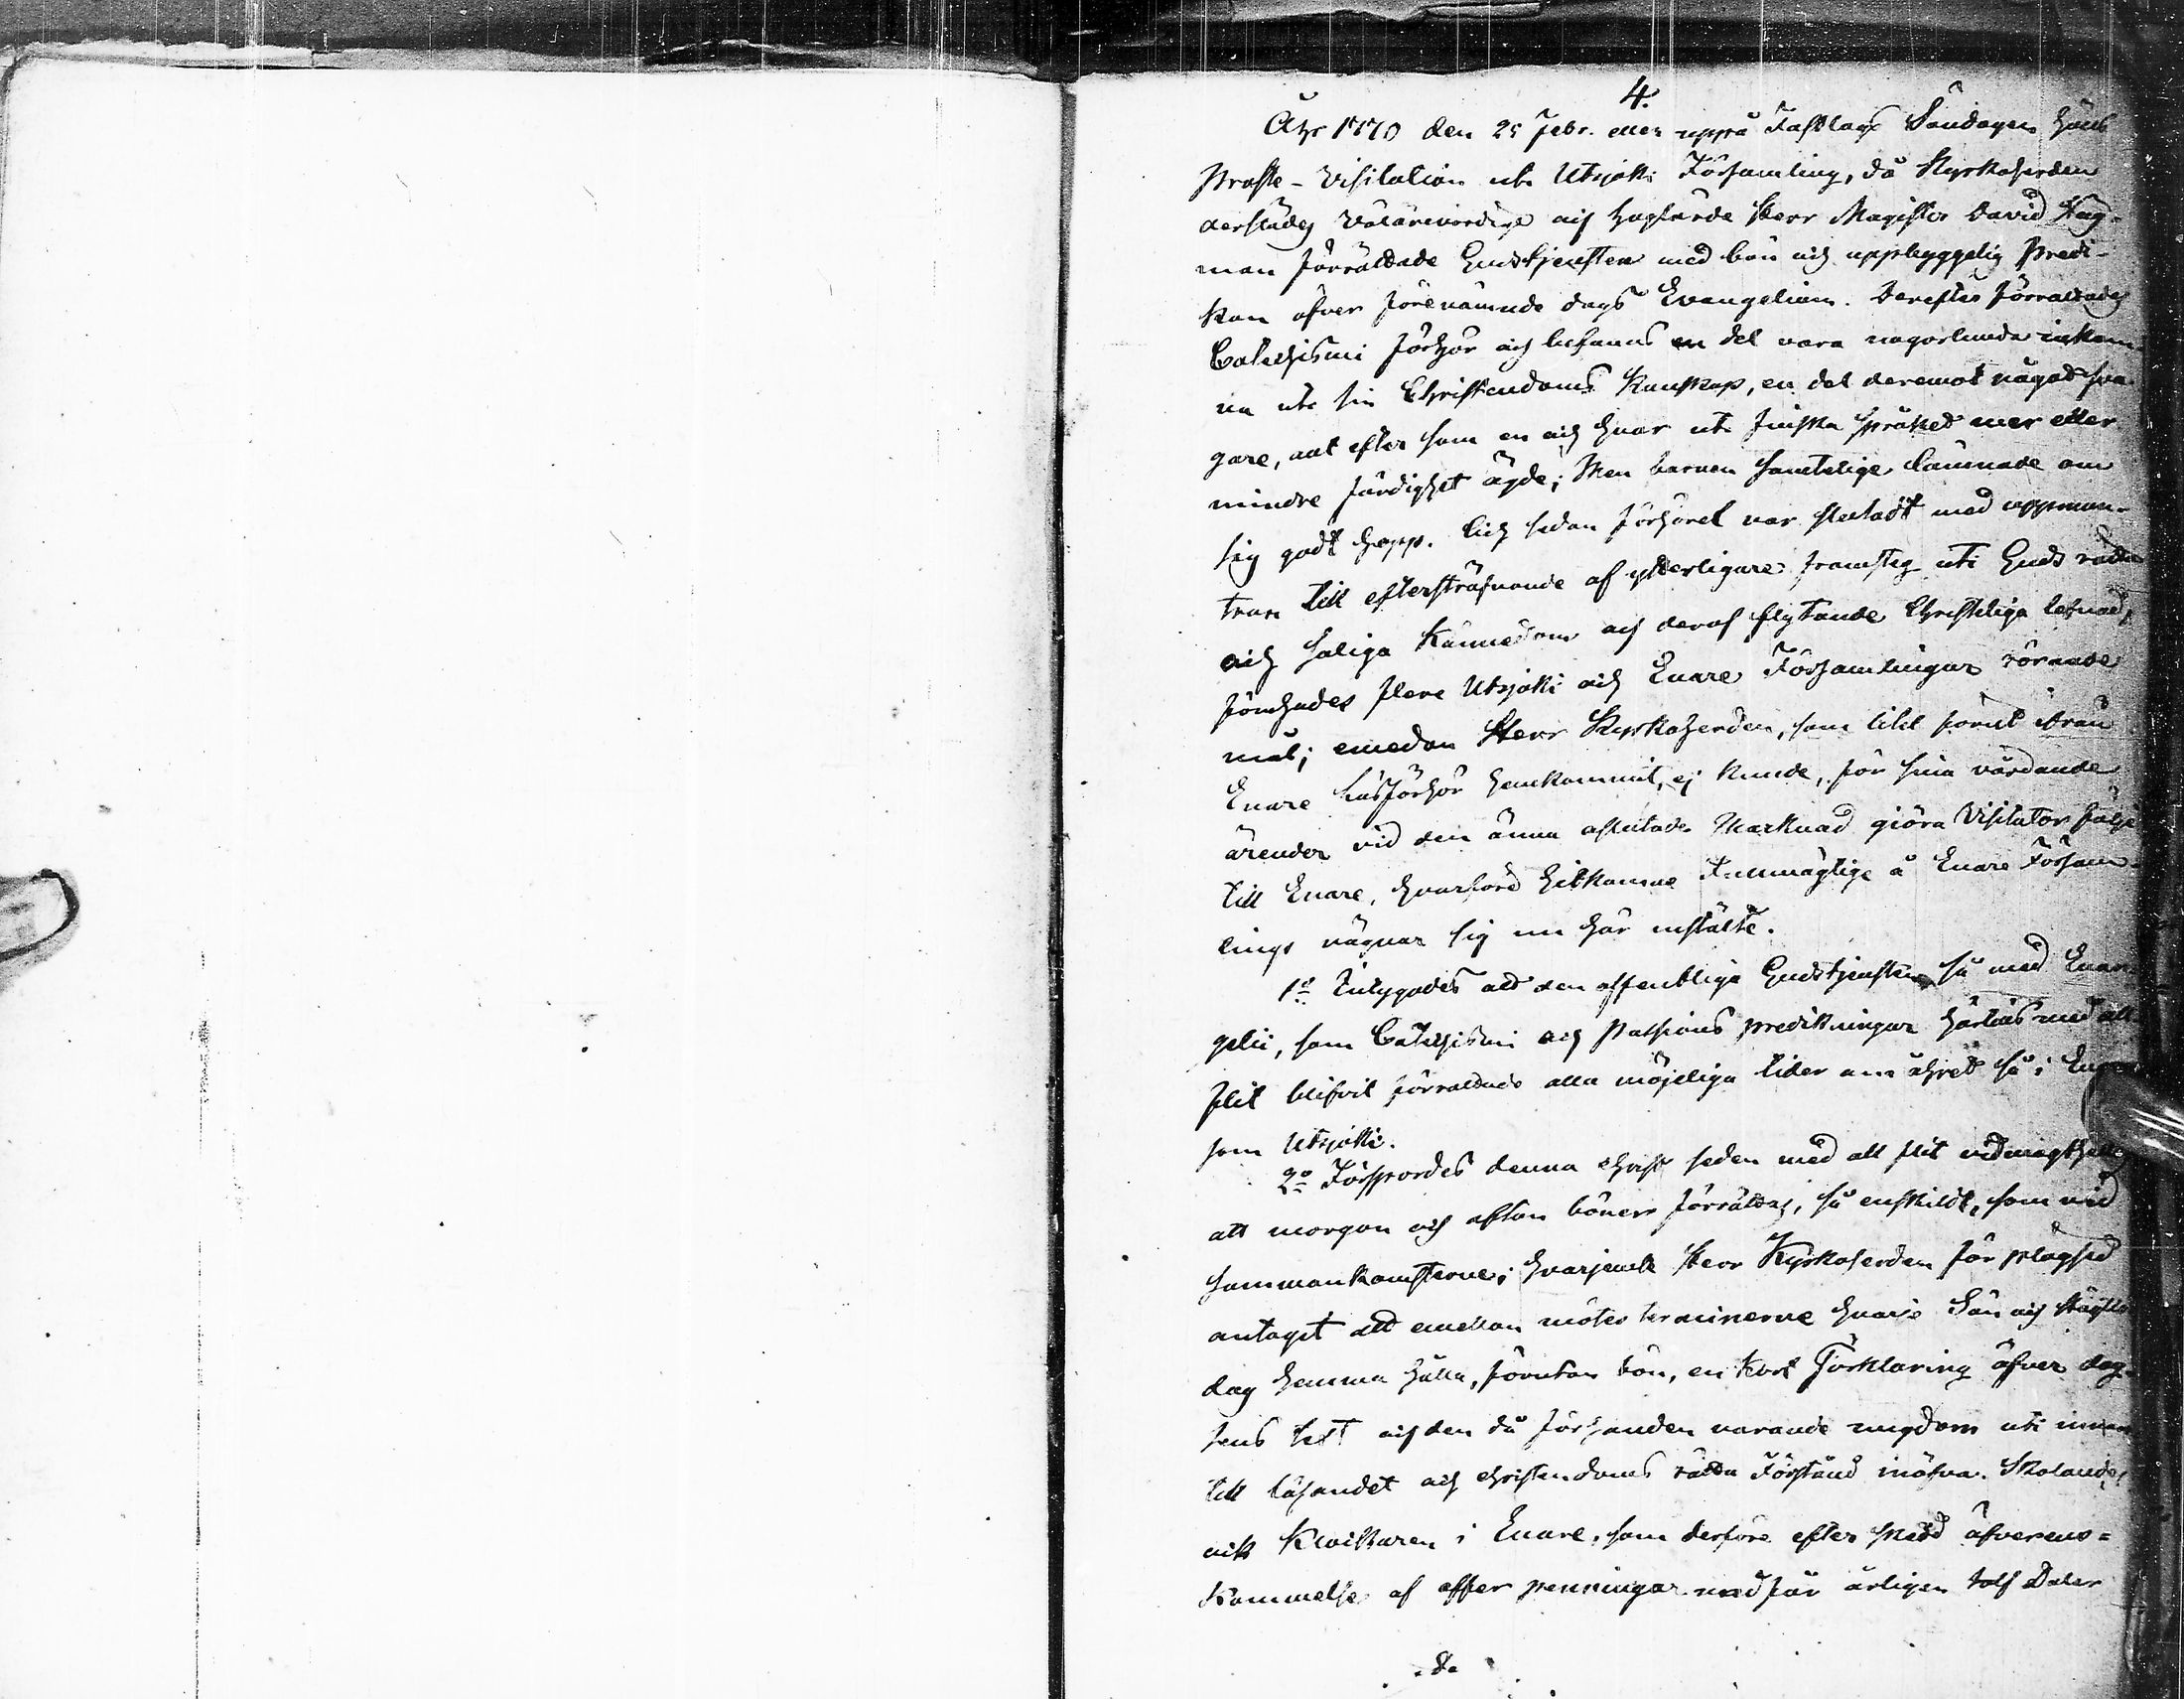 4.
Åhr 1770 den 25 Febr. eller uppå Fastlags Söndagen hölls
Proste-Visitation uti Utsjoki Församling, då Kyrkoherden
derstädes Välärevördige och höglärde Herr Magister David Hag-
man förrättade Gudstjensten med bön och uppbyggelig Predi-
kan öfver förenämnde dags Evangelium. Derefter förrättades
Catechismi förhör och befanns en del vara någorlunda inkom-
na uti sin Christendoms kunskap, en del deremot något sva-
gare, alt efter som en och hvar uti finska språket mer eller
mindre färdighet ägde; Men barnen samtelige lämnade om
sig godt hopp. Och sedan förhöret var slutadt med uppmun-
tran till eftersträfvande af ytterligare framsteg uti Guds rätta
och saliga Kännedom och deraf flytande Christeliga lefnad,
företogos flere Utsjoki och Enare Församlingar rörande
mål; emedan Herr Kyrkoherden, som litet förut ifrån
Enare husförhör hemkommit, ej kunde, för sina vårdande
ärender vid den ännu oslutade Marknad giöra Visitator följe
till Enare, hvarföre hitkomne Fullmägtige å Enare Försam-
lings vägnar sig nu här inställte.
1o Intygades att den offentliga Gudstjensten så med Evan-
gelii, som Catechismi och Passions predikningar härtils med all
flit blifvit förrättade alla möjeliga tider om åhret så i Enare
som Utsjoki.
2o Förspordes denna christl. seden med all flit vidmagthållas
att morgon och afton böner förrättas, så enskildt, som vid
sammankomsterne; hvarjemte Herr Kyrkoherden för plägsed
antagit att emellan mötes terminerne hvarje Sön och Högtids-
dag hemma hålla, förutan bön, en kort Förklaring öfver dag-
sens text och den då förhanden varande ungdom uti innan
till läsandet och christendoms rätta Förstånd inöfva. Skolandes
ock Klockaren i Enare, som derföre efter skedd öfverens=
kommelse af offer penningar undfår årligen tolf Daler